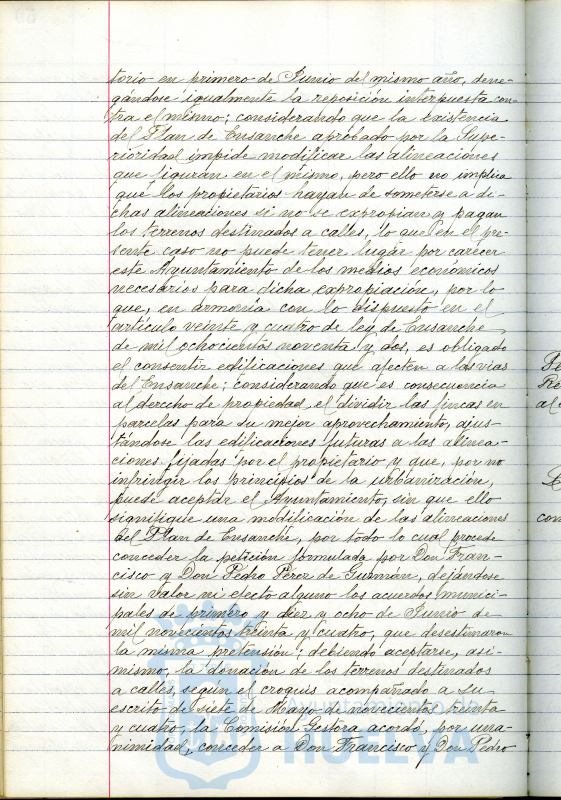 torio en primero de Junio del mismo año, dene-
gándose igualmente la reposición interpuesta con-
tra el mismo; considerando que la existencia
del Plan de Ensanche aprobado por la Supe-
rioridad impide modificar las alineaciones
que figuran en el mismo, pero ello no implica
que los propietarios hayan de someterse a di-
chas alineaciones si no se expropian y pagan
los terrenos destinados a calles, lo que en el pre-
sente caso no puede tener lugar por carecer
este Ayuntamiento de los medios económicos
necesarios para dicha expropiación, por lo
que, en armonía con lo dispuesto en el
artículo veinte y cuatro de ley de Ensanche
de mil ochocientos noventa y dos, es obligado
el consentir edificaciones que afecten a las vias
del Ensanche; considerando que es consecuencia
al derecho de propiedad, el dividir las fincas en
parcelas para su mejor aprovechamiento, ajus-
tándose las edificaciones futuras a las alinea-
ciones fijadas por el propietario y que, por no
infringir los principios de la urbanización,
puede aceptar el Ayuntamiento, sin que ello
signifique una modificación de las alineaciones
del Plan de Ensanche, por todo lo cual procede
conceder la petición formulada por Don Fran-
cisco y Don Pedro Pérez de Guzmán, dejándose
sin valor ni efecto alguno los acuerdos munici-
pales de primero y diez y ocho de Junio de
mil novecientos treinta y cuatro, que desestimaron
la misma pretensión; debiendo aceptarse, asi-
mismo, la donación de los terrenos destinados
a calles, según el croquis acompañado a su
escrito de siete de Mayo de novecientos treinta
y cuatro, la Comisión Gestora acordó, por una-
nimidad, conceder a Don Francisco y Don Pedro
HUELVA